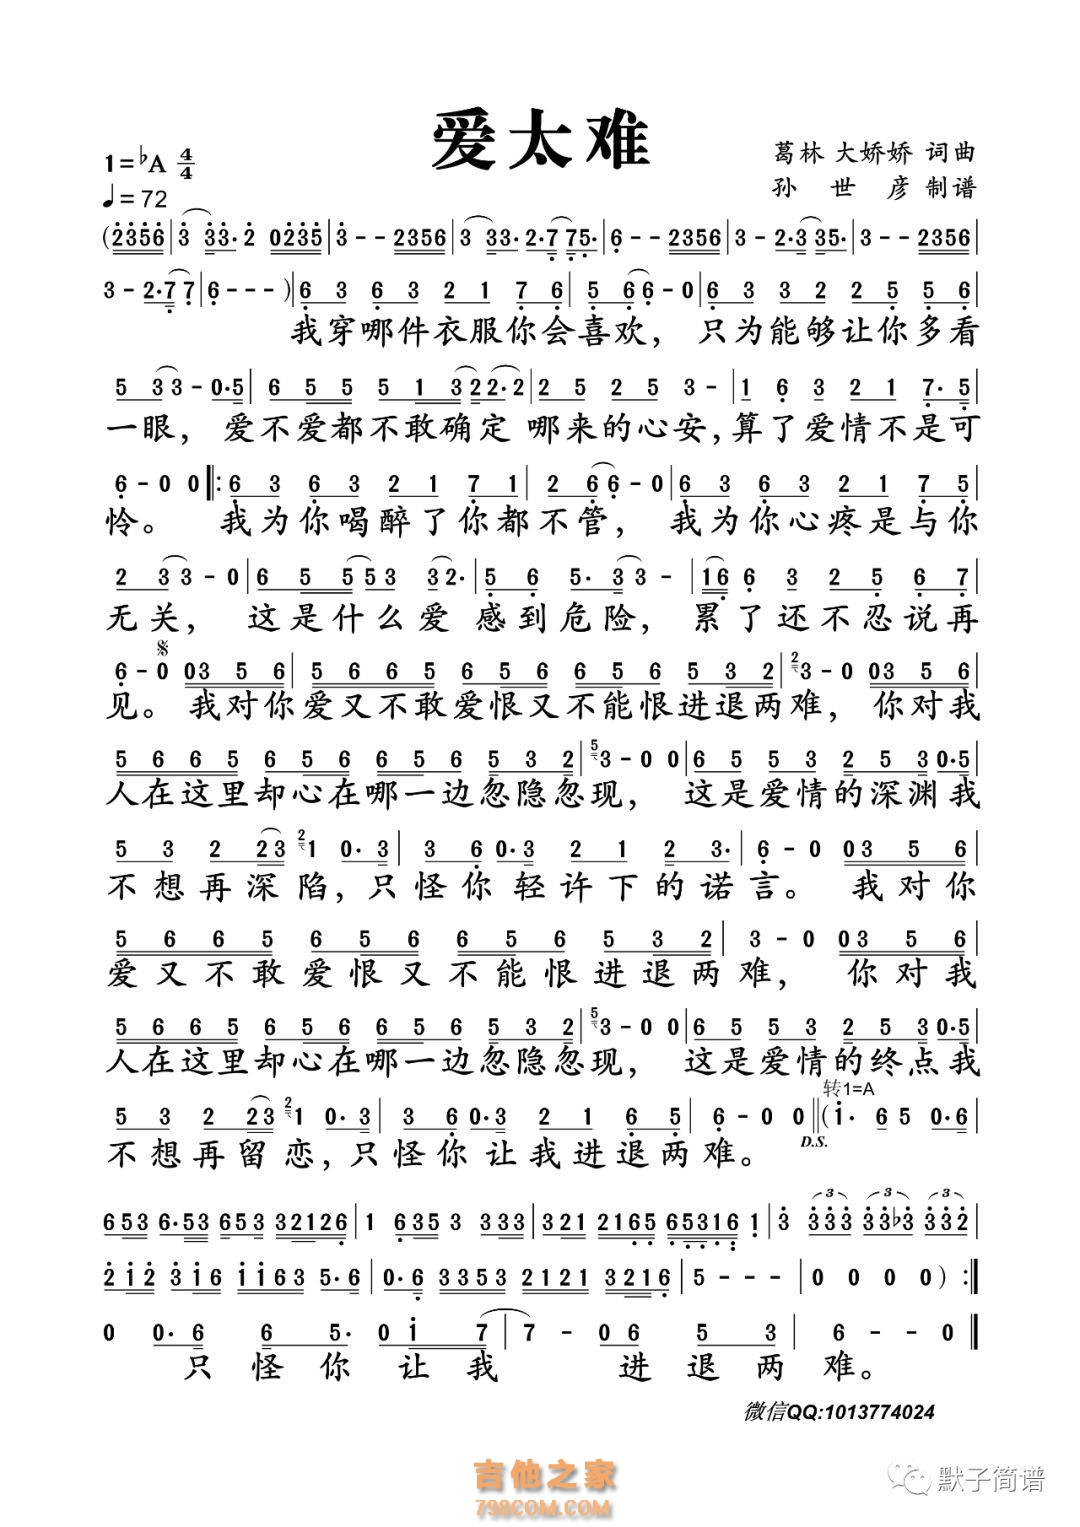 爱太难
1=♭A 4/4
♩=72
葛林 大娇娇 词曲
孙 世 彦 制谱
(2356|3 33·2 0235|3--2356|3 33·2·7 75·|6--2356|3-2·3 35·|3--2356|
3-2·7 7|6---)|6 3 6 3 2 1 7 6|5 6 6-0|6 3 3 2 2 5 5 6|
我穿哪件衣服你会喜欢，只为能够让你多看
5 3 3-0·5|6 5 5 5 5 1 3 2 2·2|2 5 2 5 3-|1 6 3 2 1 7·5|
一眼，爱不爱都不敢确定 哪来的心安，算了爱情不是可
6-0 0‖:6 3 6 3 2 1 7 1|2 6 6-0|6 3 6 3 2 1 7 5|
怜。我为你喝醉了你都不管，我为你心疼是与你
2 3 3-0|6 5 5 5 3 3 2·|5 6 5·3 3-|1 6 6 3 2 5 6 7|
无关，这是什么爱 感到危险，累了还不忍说再
6-0 03 5 6|5 6 6 5 6 5 6 6 5 6 5 3 2|2 3-0 03 5 6|
见。我对你爱又不敢爱恨又不能恨进退两难，你对我
5 6 6 5 6 5 6 6 5 6 5 3 2|5 3-0 0|6 5 5 3 2 5 3 0·5|
人在这里却心在哪一边忽隐忽现，这是爱情的深渊我
5 3 2 2 3 2 1 0·3|3 6 0·3 2 1 2 3·|6-0 03 5 6|
不想再深陷，只怪你轻许下的诺言。我对你
5 6 6 5 6 5 6 6 5 6 5 3 2|3-0 03 5 6|
爱又不敢爱恨又不能恨进退两难，你对我
5 6 6 5 6 5 6 6 5 6 5 3 2|5 3-0 0|6 5 5 3 2 5 3 0·5|
人在这里却心在哪一边忽隐忽现，这是爱情的终点我
转1=A
5 3 2 2 3 2 1 0·3|3 6 0·3 2 1 6 5|6-0 0‖(1·6 5 0·6|
D.S.
不想再留恋，只怪你让我进退两难。
653 6·53 653 32126|1 6353 333|321 2165 65316 1|3 333 33♭3 332|
212 316 1163 5·6|0·6 3353 2121 3216|5---|0 0 0 0):‖
0 0·6 6 5·0 1 7|7-06 5 3|6--0‖
只怪你让我 进退两难。
微信QQ:1013774024
吉他之家
798COM.COM
默子简谱